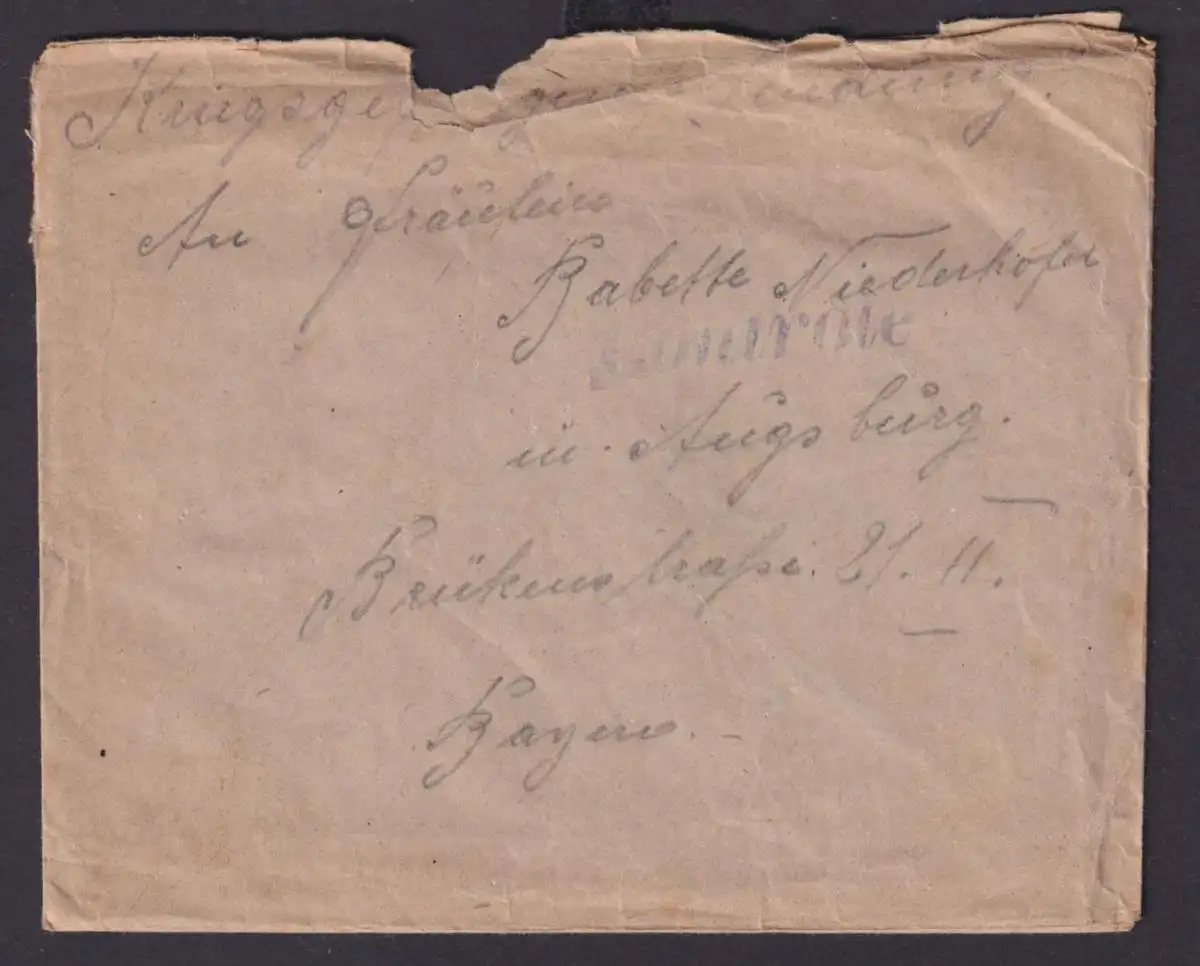 Kriegsgef genensendung.
An Fräulein
Babette Niederhofer
Kontrolle
in Augsburg.
Brükenstraße. 21. II.
Bayern.